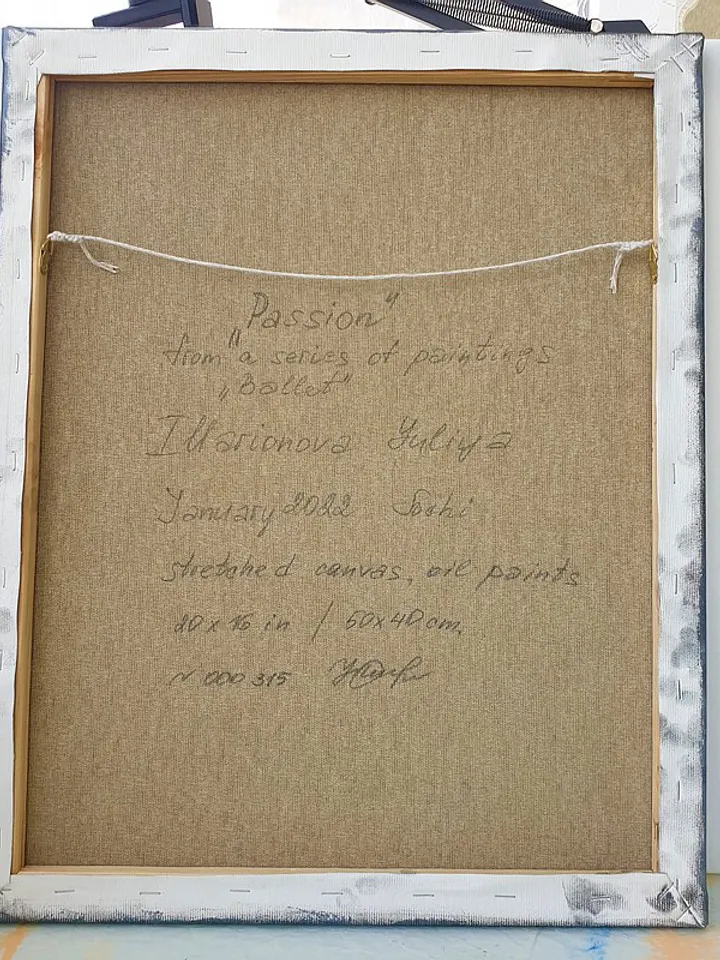 "Passion"
from a series of paintings
„Ballet"
Illarionova Yuliya
January 2022 Sochi
stretched canvas, oil paints
20x16 in / 50x40 cm,
N 000 315